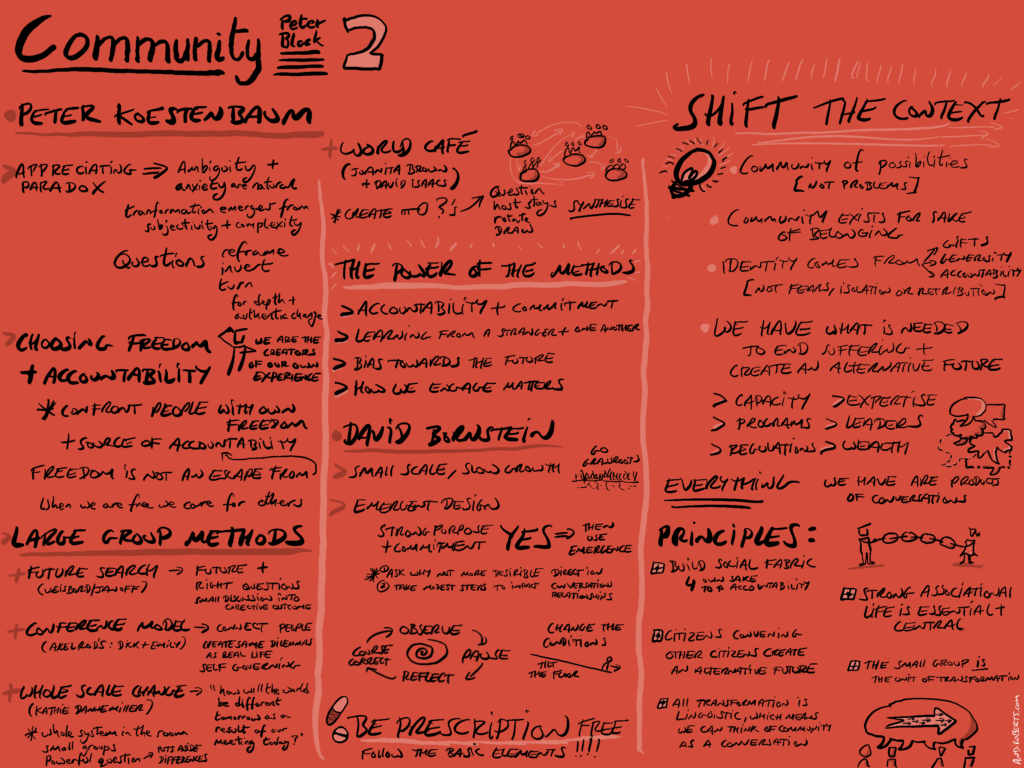 Community
Peter
Block
2
PETER KOESTENBAUM
APPRECIATING ⇒ Ambiguity +
PARADOX
anxiety are natural
tranformation emerges from
subjectivity + complexity
Questions reframe
invert
turn
for depth +
authentic change
CHOOSING FREEDOM
+ ACCOUNTABILITY
WE ARE THE
CREATORS
OF OUR OWN
EXPERIENCE
* CONFRONT PEOPLE WITH OWN
FREEDOM
+ SOURCE OF ACCOUNTABILITY
FREEDOM IS NOT AN ESCAPE FROM
When we are free we care for others
LARGE GROUP METHODS
+ FUTURE SEARCH → FUTURE +
(WEISBORD/JANOFF)
RIGHT QUESTIONS
SMALL DISCUSSION INTO
COLLECTIVE OUTCOME
+ CONFERENCE MODEL → CONNECT PEOPLE
(AXELRODS: DICK + EMILY)
CREATE SAME DILEMMAS
AS REAL LIFE
SELF GOVERNING
+ WHOLE SCALE CHANGE →
(KATHIE DANNEMILLER)
"how will the world
be different
tomorrow as a
result of our
meeting today?"
* Whole system in the room
small groups
Powerful question → PUTS ASIDE
DIFFERENCES
+ WORLD CAFÉ
(JUANITA BROWN
+ DAVID ISAACS)
* CREATE ?'s
Question
host stays
rotate
DRAW
SYNTHESISE
THE POWER OF THE METHODS
> ACCOUNTABILITY + COMMITMENT
> LEARNING FROM A STRANGER + ONE ANOTHER
> BIAS TOWARDS THE FUTURE
> HOW WE ENGAGE MATTERS
DAVID BORNSTEIN
> SMALL SCALE, SLOW GROWTH
GO
GRASSROOTS
> EMERGENT DESIGN
STRONG PURPOSE
+ COMMITMENT
YES ⇒ THEN
USE
EMERGENCE
* ① ASK WHY NOT MORE DESIRIBLE DIRECTION
② TAKE MODEST STEPS TO IMPACT CONVERSATION
RELATIONSHIPS
OBSERVE
PAUSE
REFLECT
COURSE
CORRECT
CHANGE THE
CONDITIONS
TILT
THE FLOOR
BE PRESCRIPTION FREE
FOLLOW THE BASIC ELEMENTS !!!!
SHIFT THE CONTEXT
COMMUNITY OF POSSIBILITIES
[NOT PROBLEMS]
COMMUNITY EXISTS FOR SAKE
OF BELONGING
IDENTITY COMES FROM
GIFTS
GENEROSITY
ACCOUNTABILITY
[NOT FEARS, ISOLATION OR RETRIBUTION]
WE HAVE WHAT IS NEEDED
TO END SUFFERING +
CREATE AN ALTERNATIVE FUTURE
> CAPACITY > EXPERTISE
> PROGRAMS > LEADERS
> REGULATIONS > WEALTH
EVERYTHING WE HAVE ARE PRODUCT
OF CONVERSATIONS
PRINCIPLES:
BUILD SOCIAL FABRIC
4 OWN SAKE
TO ACCOUNTABILITY
STRONG ASSOCIATIONAL
LIFE IS ESSENTIAL +
CENTRAL
CITIZENS CONVENING
OTHER CITIZENS CREATE
AN ALTERNATIVE FUTURE
THE SMALL GROUP IS
THE UNIT OF TRANSFORMATION
ALL TRANSFORMATION IS
LINGUISTIC, WHICH MEANS
WE CAN THINK OF COMMUNITY
AS A CONVERSATION
ANDIROBERTS.com